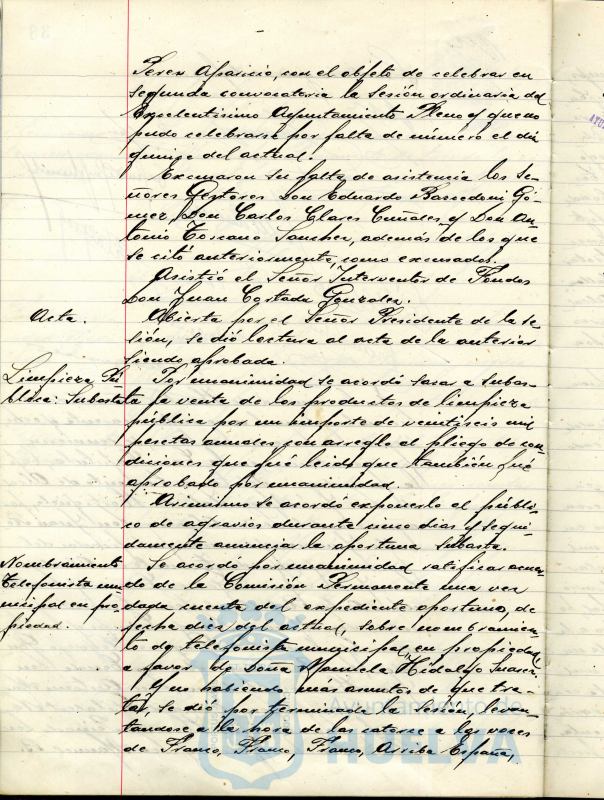 Perez Aparicio, con el objeto de celebrar en
segunda convocatoria la sesión ordinaria del
Excelentísimo Ayuntamiento Pleno y que no
pudo celebrarse por falta de número el día
quince del actual.
Excusaron su falta de asistencia los Se-
ñores Gestores Don Eduardo Gó-
mez, Don Carlos Clares y Don An-
tonio Toscano Sanchez, además de los que
se citó anteriormente, como excusados.
Asistió el Señor Interventor de Fondos
Don Juan Cortada Gonzalez.
Acta.
Abierta por el Señor Presidente de la se-
sión, se dió lectura al acta de la anterior
siendo aprobada.
Limpieza Pú-
blica: Subasta
Por unanimidad se acordó sacar a subas-
ta la venta de los productos de limpieza
pública por un importe de veintiseis mil
pesetas anuales con arreglo al pliego de con-
diciones que fué leido que también fué
aprobado por unanimidad.
Asimismo se acordó exponerlo al públi-
co de agravios durante cinco dias y segui-
damente anunciar la oportuna subasta.
Nombramiento
Telefonista mu-
nicipal en pro-
piedad.
Se acordó por unanimidad ratificar acuer-
do de la Comisión Permanente una vez
dada cuenta del expediente oportuno, de
fecha diez del actual, sobre nombramien-
to de telefonista municipal, en propiedad
a favor de Doña Manuela Hidalgo Suarez.
Y no habiendo más asuntos de que tra-
tar, se dió por terminada la sesión, levan-
tandose a la hora de las catorce a las voces
de Franco, Franco, Franco, Arriba España,
Ayuntamiento de
HUELVA